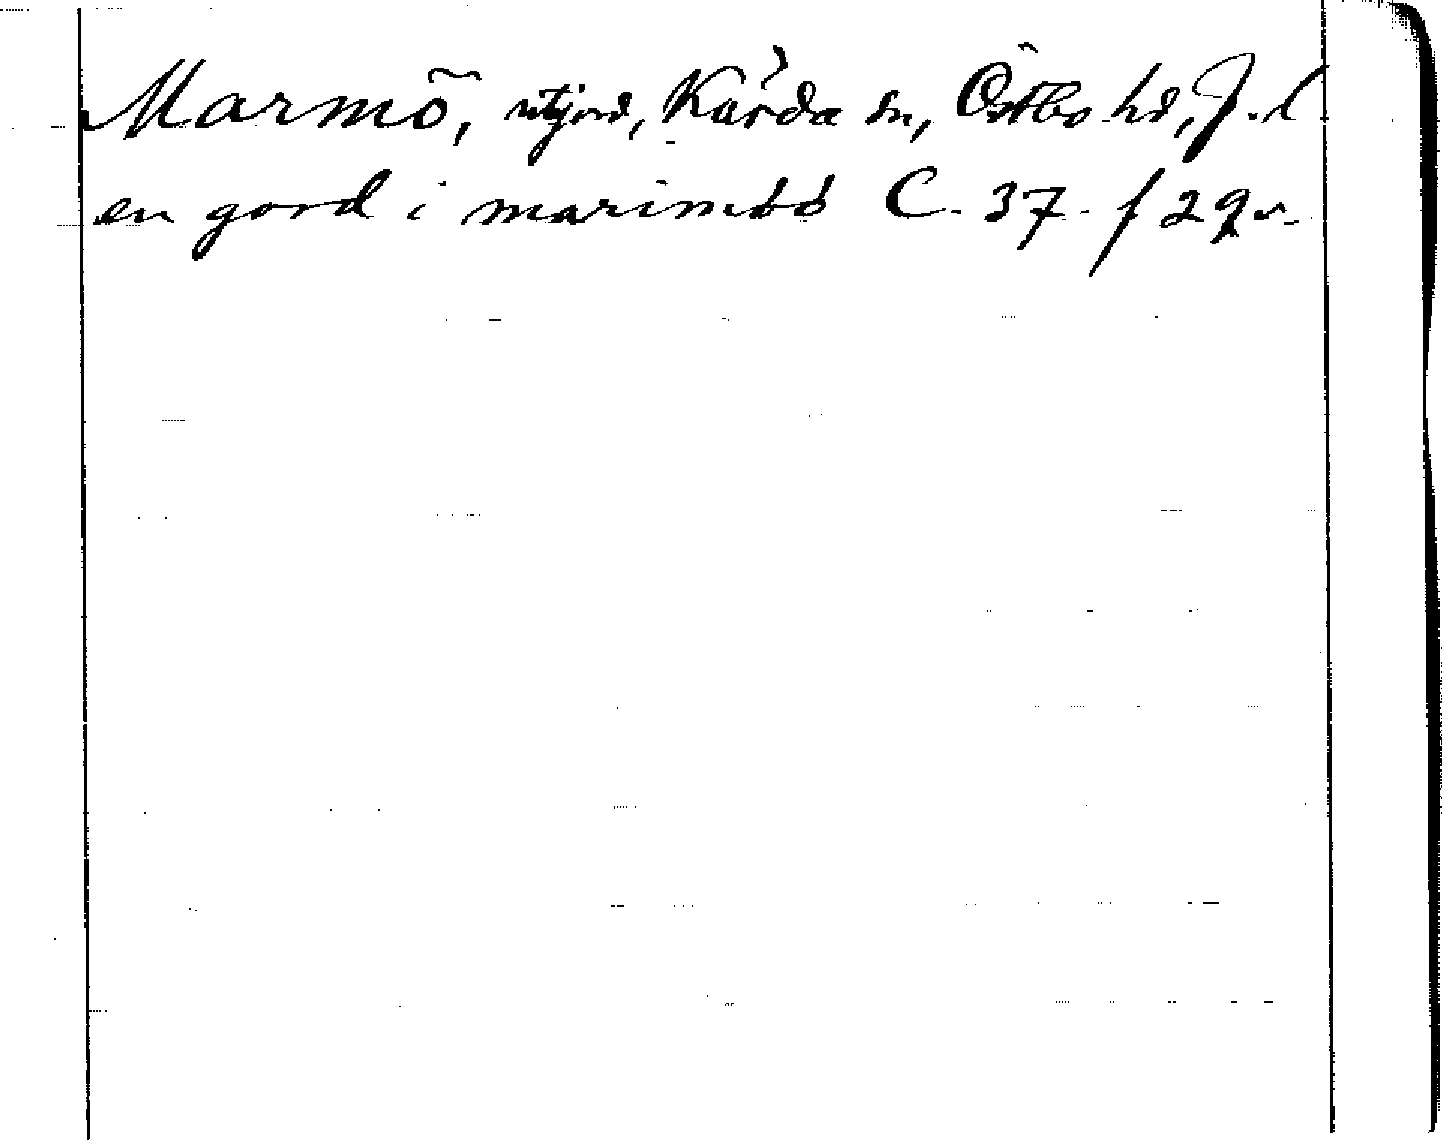 Marmö, utjord, Kärda sn, Östbo hd, J. l
en gord i marimöö C. 37 f 29 v.